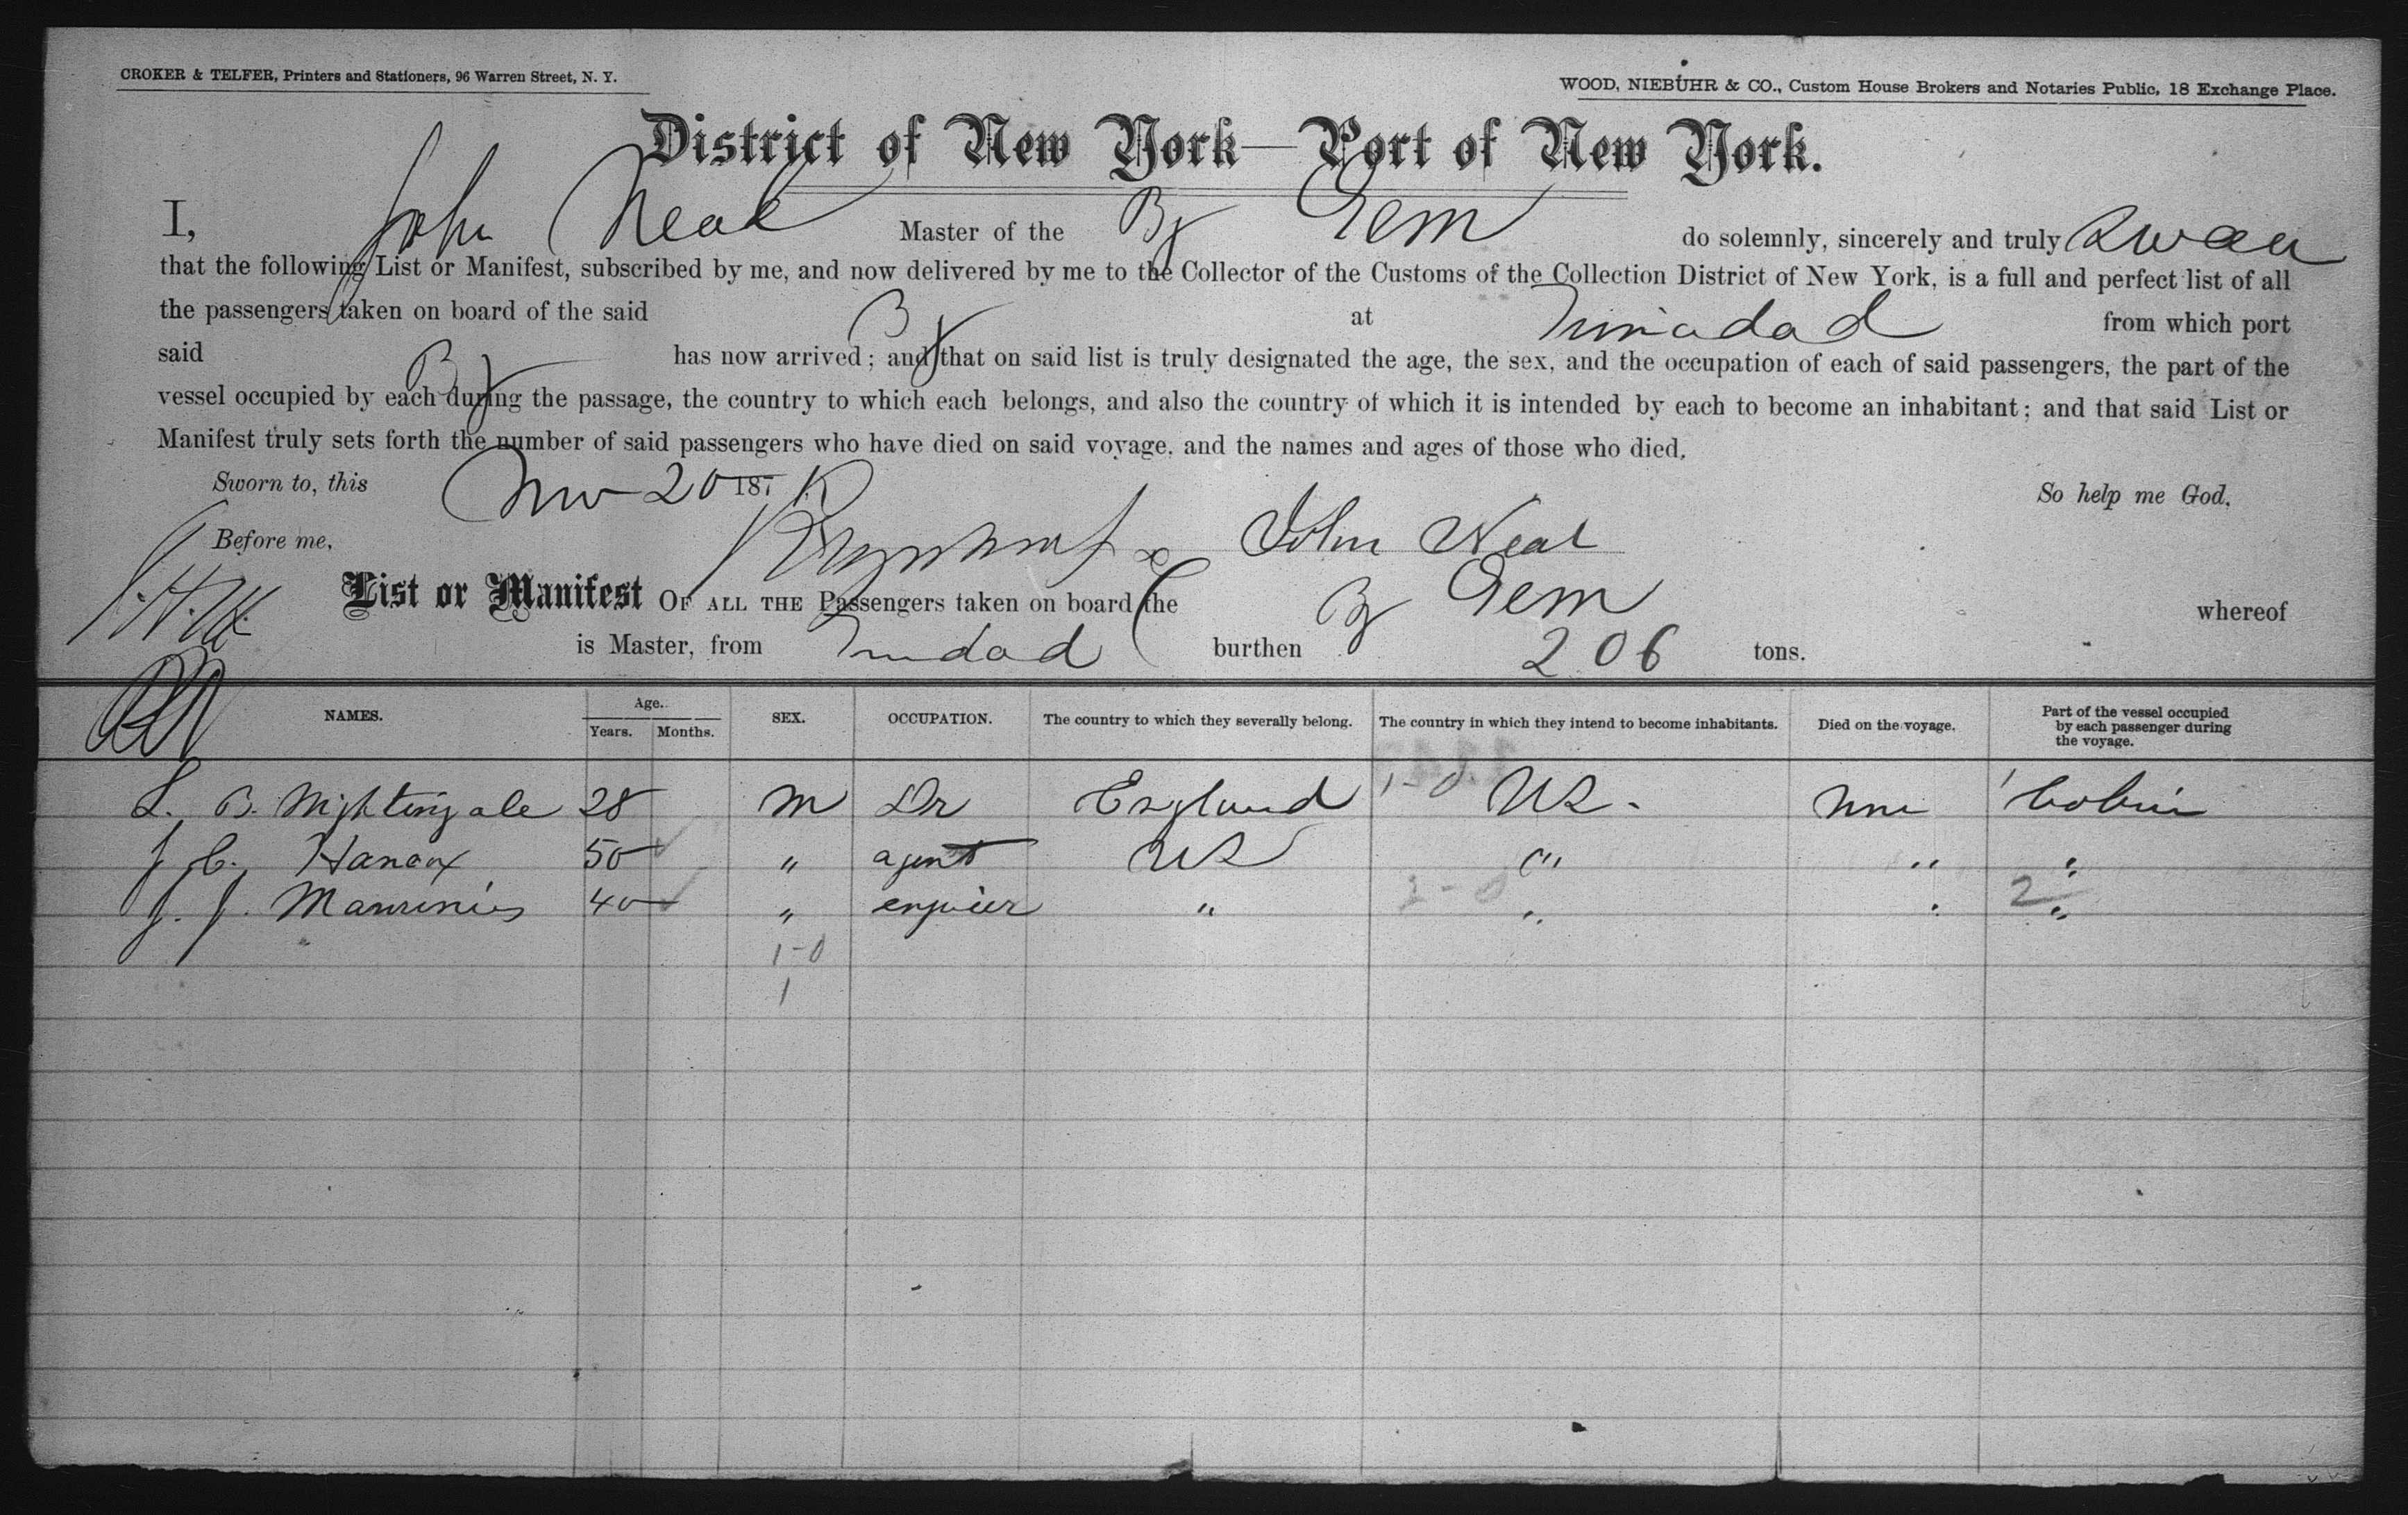 CROKER & TELFER, Printers and Stationers, 96 Warren Street, N. Y.
WOOD, NIEBUHR & CO., Custom House Brokers and Notaries Public, 18 Exchange Place.
District of New York—Port of New York.
I, John Neal Master of the Bg Gem do solemnly, sincerely and truly swear
that the following List or Manifest, subscribed by me, and now delivered by me to the Collector of the Customs of the Collection District of New York, is a full and perfect list of all
the passengers taken on board of the said Bg at Trinidad from which port
said Bg has now arrived; and that on said list is truly designated the age, the sex, and the occupation of each of said passengers, the part of the
vessel occupied by each during the passage, the country to which each belongs, and also the country of which it is intended by each to become an inhabitant; and that said List or
Manifest truly sets forth the number of said passengers who have died on said voyage, and the names and ages of those who died.
Sworn to, this Nov 20 187 So help me God.
Before me, John Neal
List or Manifest OF ALL THE Passengers taken on board the Bg Gem whereof
is Master, from Trinidad burthen 206 tons.
NAMES. Age. Years. Months. SEX. OCCUPATION. The country to which they severally belong. The country in which they intend to become inhabitants. Died on the voyage. Part of the vessel occupied by each passenger during the voyage.
L. B. Nightingale 28 M Dr England 1-0 US. None 1 Cabin
J C. Hancox 50 " agent US " " "
J. J. 40 " engineer " " " 2 "
1-0
1